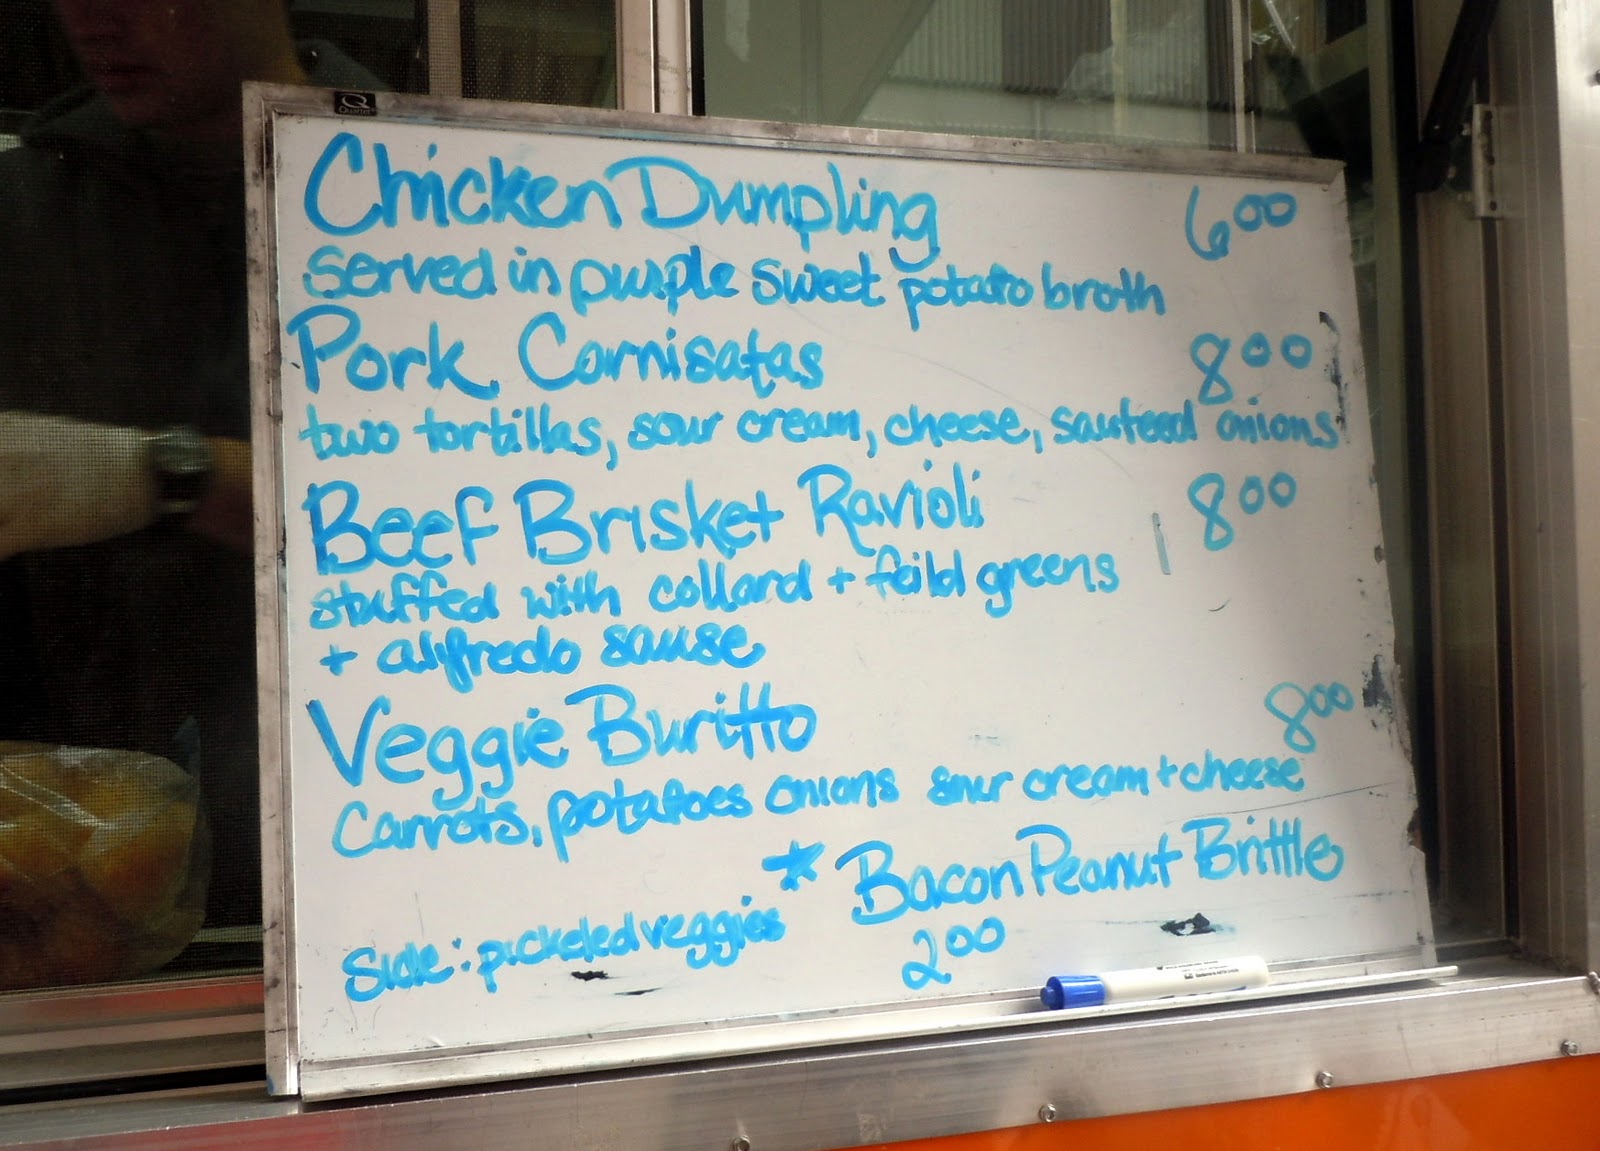 Quartet
Chicken Dumpling 6.00
served in purple sweet potato broth
Pork Carnisatas 8.00
two tortillas, sour cream, cheese, sauteed onions
Beef Brisket Ravioli 8.00
stuffed with collard + feild greens
+ alfredo sause
Veggie Buritto 8.00
Carrots, potatoes onions sour cream + cheese
* Bacon Peanut Brittle
Side: pickeled veggies 2.00